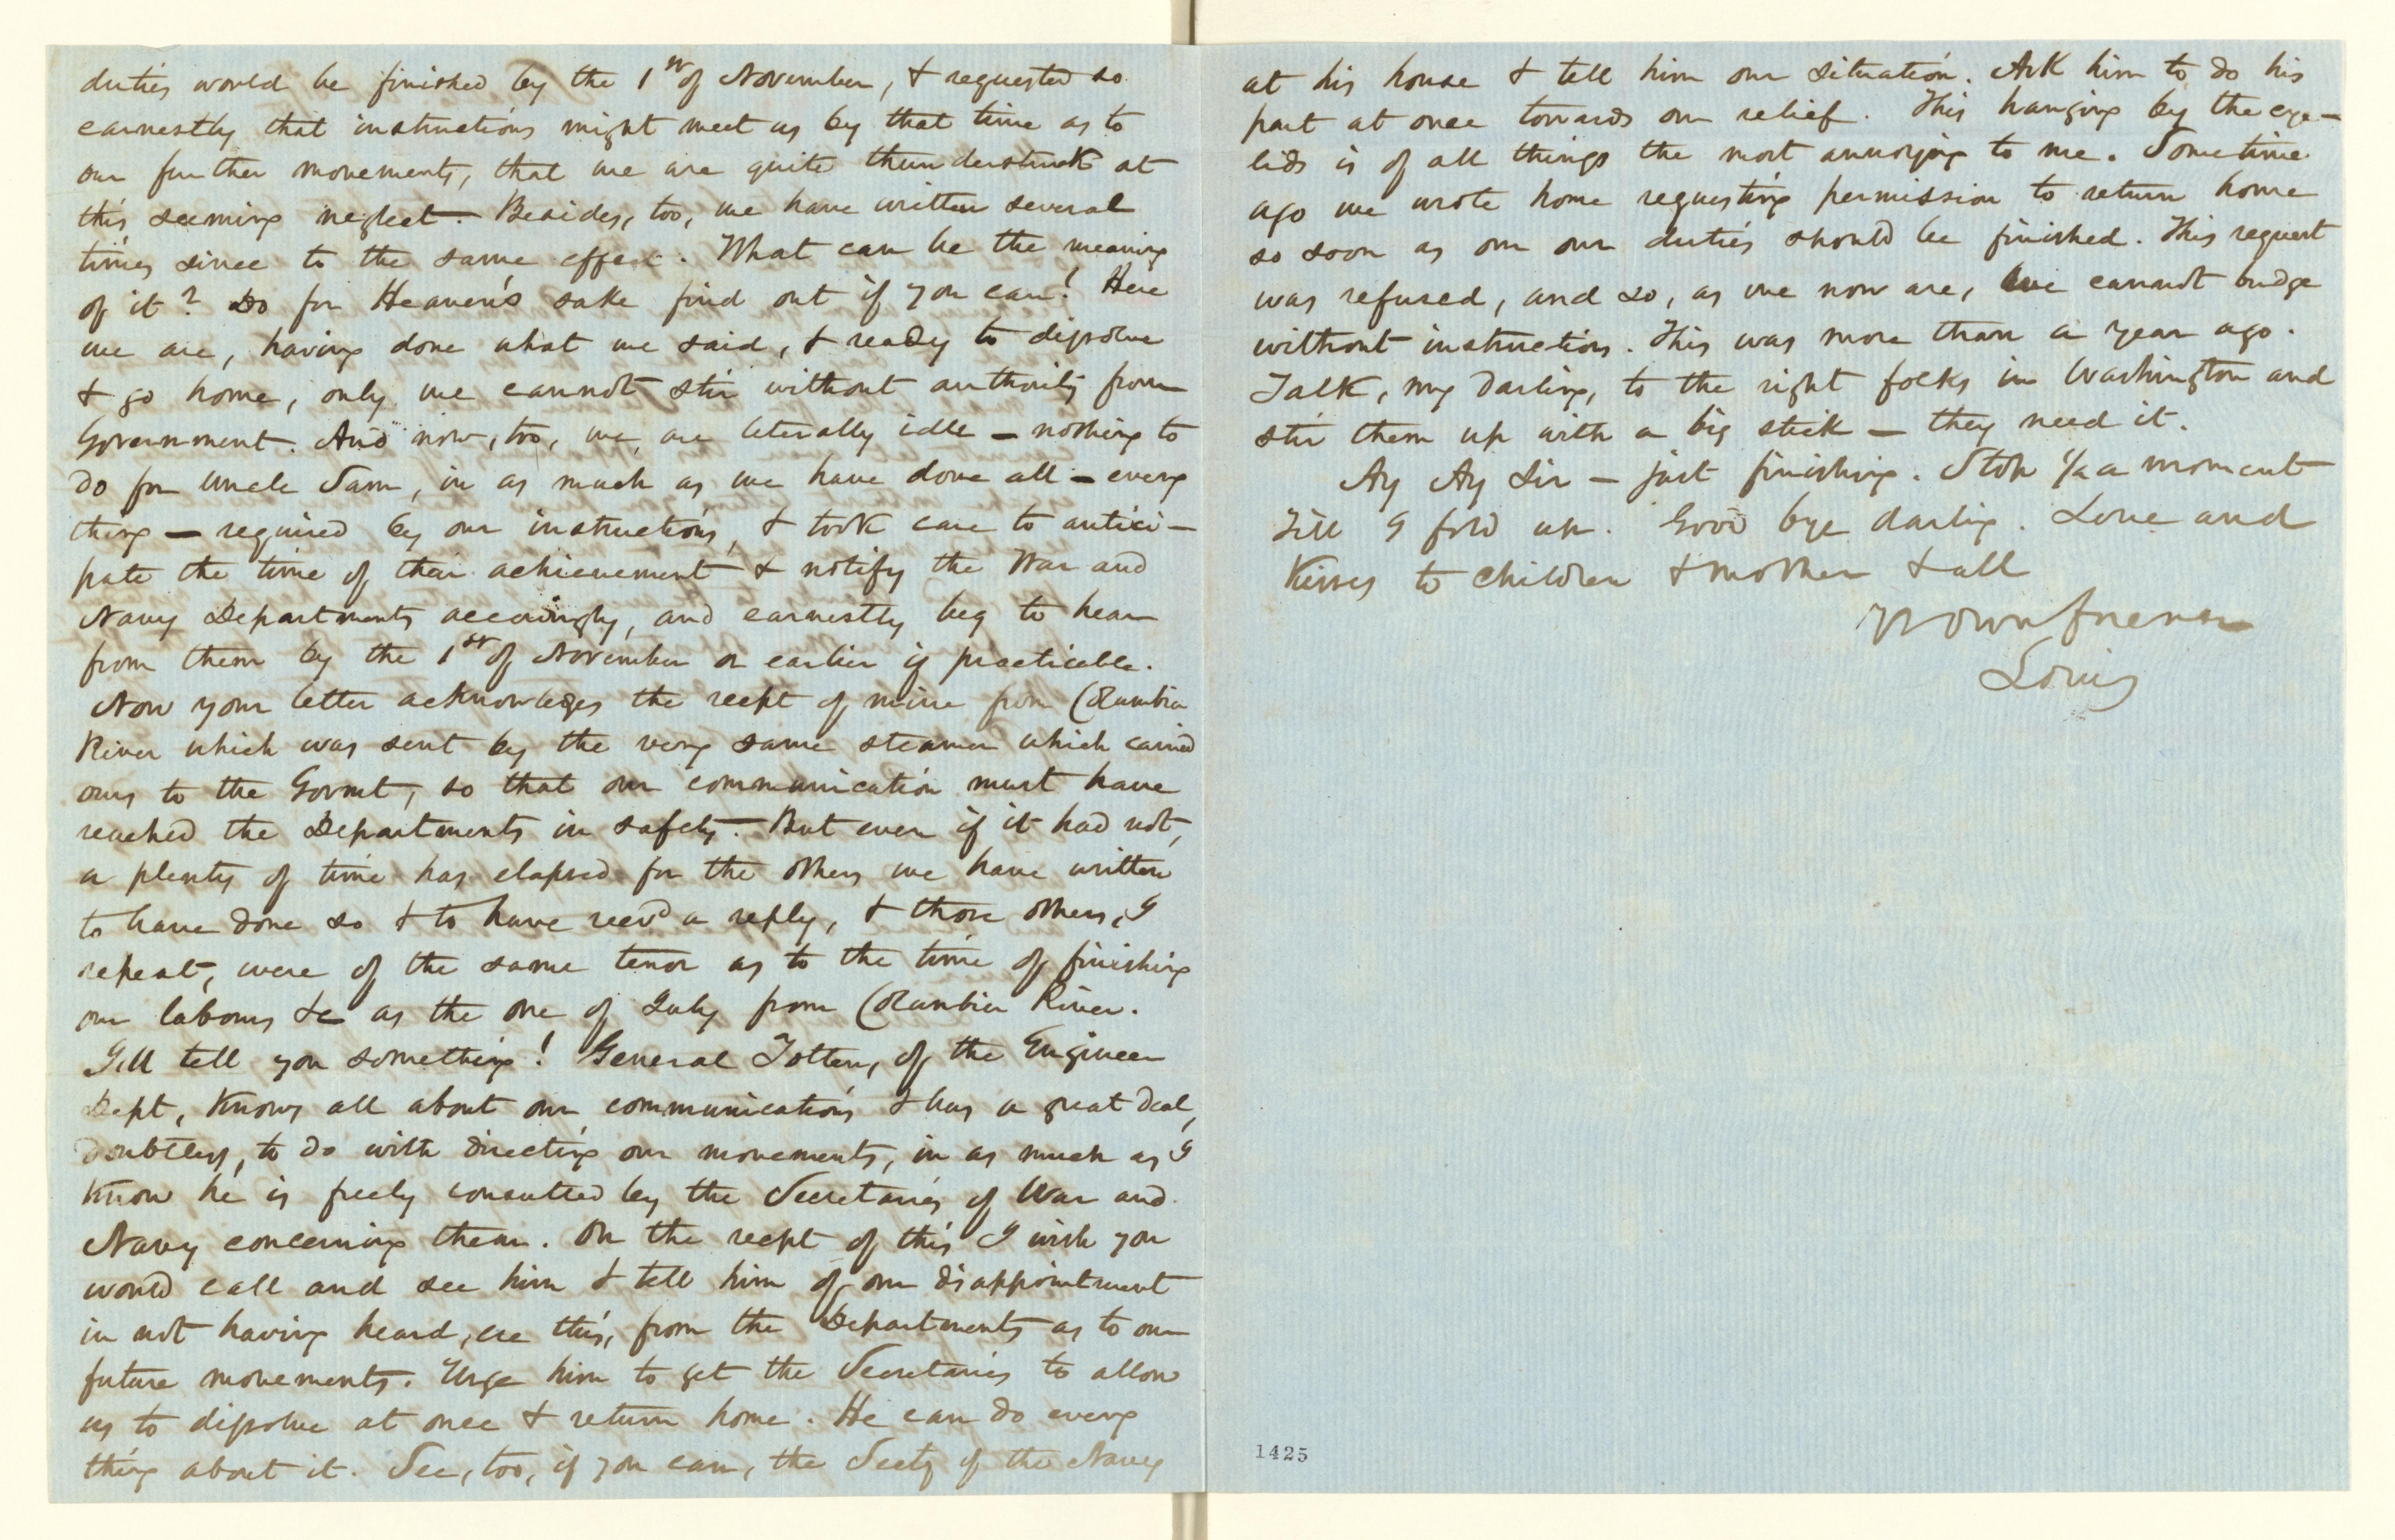 duties would be finished by the 1st of November, & requested so
earnestly that instructions might meet us by that time as to
our further movements, that we are quite thunderstruck at
this seeming neglect. Besides, too, we have written several
times since to the same effect. What can be the meaning
of it? Do for Heaven's sake find out if you can! Here
we are, having done what we said, & ready to dissolve
& go home, only we cannot stir without authority from
Government. And now, too, we are literally idle - nothing to
do for Uncle Sam, in as much as we have done all - every
thing - required by our instructions, & took care to antici-
pate the time of their achievement & notify the War and
Navy Departments accordingly, and earnestly beg to hear
from them by the 1st of November or earlier if practicable.
Now your letter acknowledges the recpt of mine from Columbia
River which was sent by the very same steamer which carried
ours to the Govmt, so that our communication must have
reached the Departments in safety. But even if it had not,
a plenty of time has elapsed for the others we have written
to have done so & to have recvd a reply, & those others, I
repeat, were of the same tenor as to the time of finishing
our labours &c as the one of July from Columbia River.
I'll tell you something! General Totten, of the Engineer
Dept, knows all about our communications & has a great deal,
doubtless, to do with directing our movements, in as much as I
know he is freely consulted by the Secretaries of War and
Navy concerning them. On the recpt of this I wish you
would call and see him & tell him of our disappointment
in not having heard, ere this, from the Departments as to our
future movements. Urge him to get the Secretaries to allow
us to dissolve at once & return home. He can do every
thing about it. See, too, if you can, the Secty of the Navy
at his house & tell him our situation. Ask him to do his
part at once towards our relief. This hanging by the eye-
lids is of all things the most annoying to me. Sometime
ago we wrote home requesting permission to return home
so soon as our our duties should be finished. This request
was refused, and so, as we now are, we cannot budge
without instructions. This was more than a year ago.
Talk, my darling, to the right folks in Washington and
stir them up with a big stick - they need it.
Ay Ay Sir - just finishing. Stop 1/2 a moment
till I fold up. Good bye darling. Love and
kisses to children & mother & all
Yr own
Louis
1425